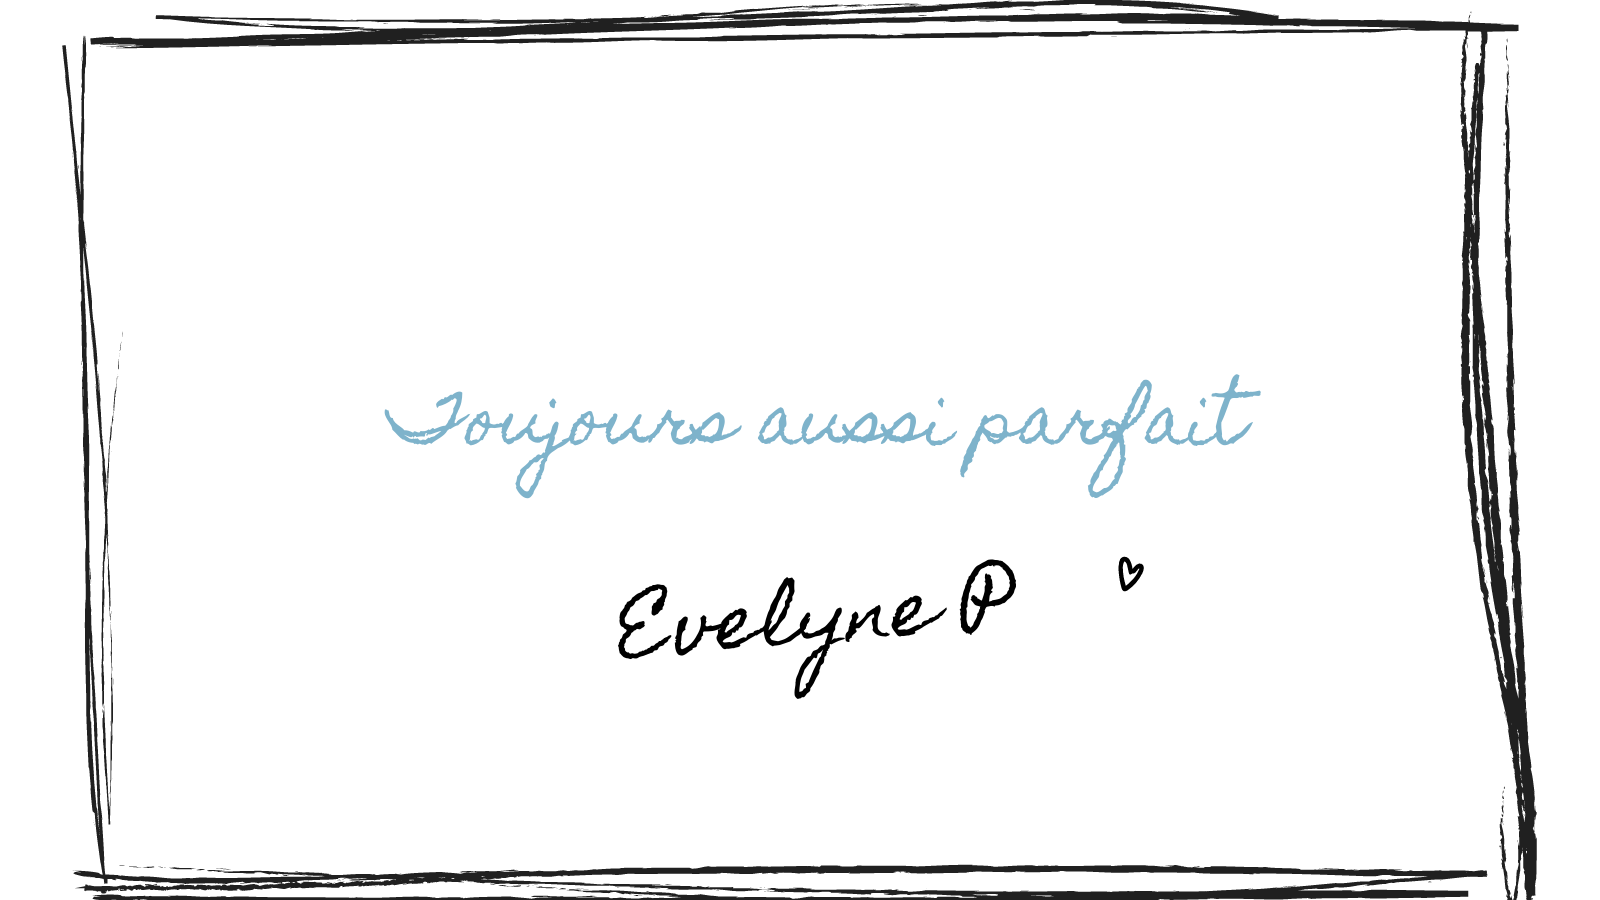 Toujours aussi parfait
Evelyne P